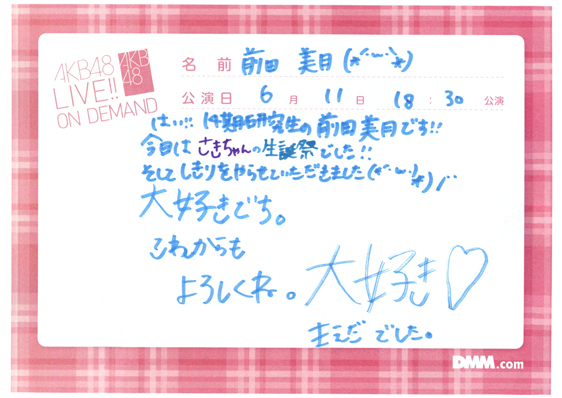 AKB48
LIVE!!
ON DEMAND
AKB
48
名前 前田 美月(*˘︶˘*)
公演日 6月11日 18:30 公演
はい!! 14期研究生の前田美月です!!
今日は さきちゃんの生誕祭でした!!
そして しきりをやらせていただきました(*˘︶˘*)/``
大好きでち。
これからも
よろしくね。
大好き♡
まえだ でした。
DMM.com